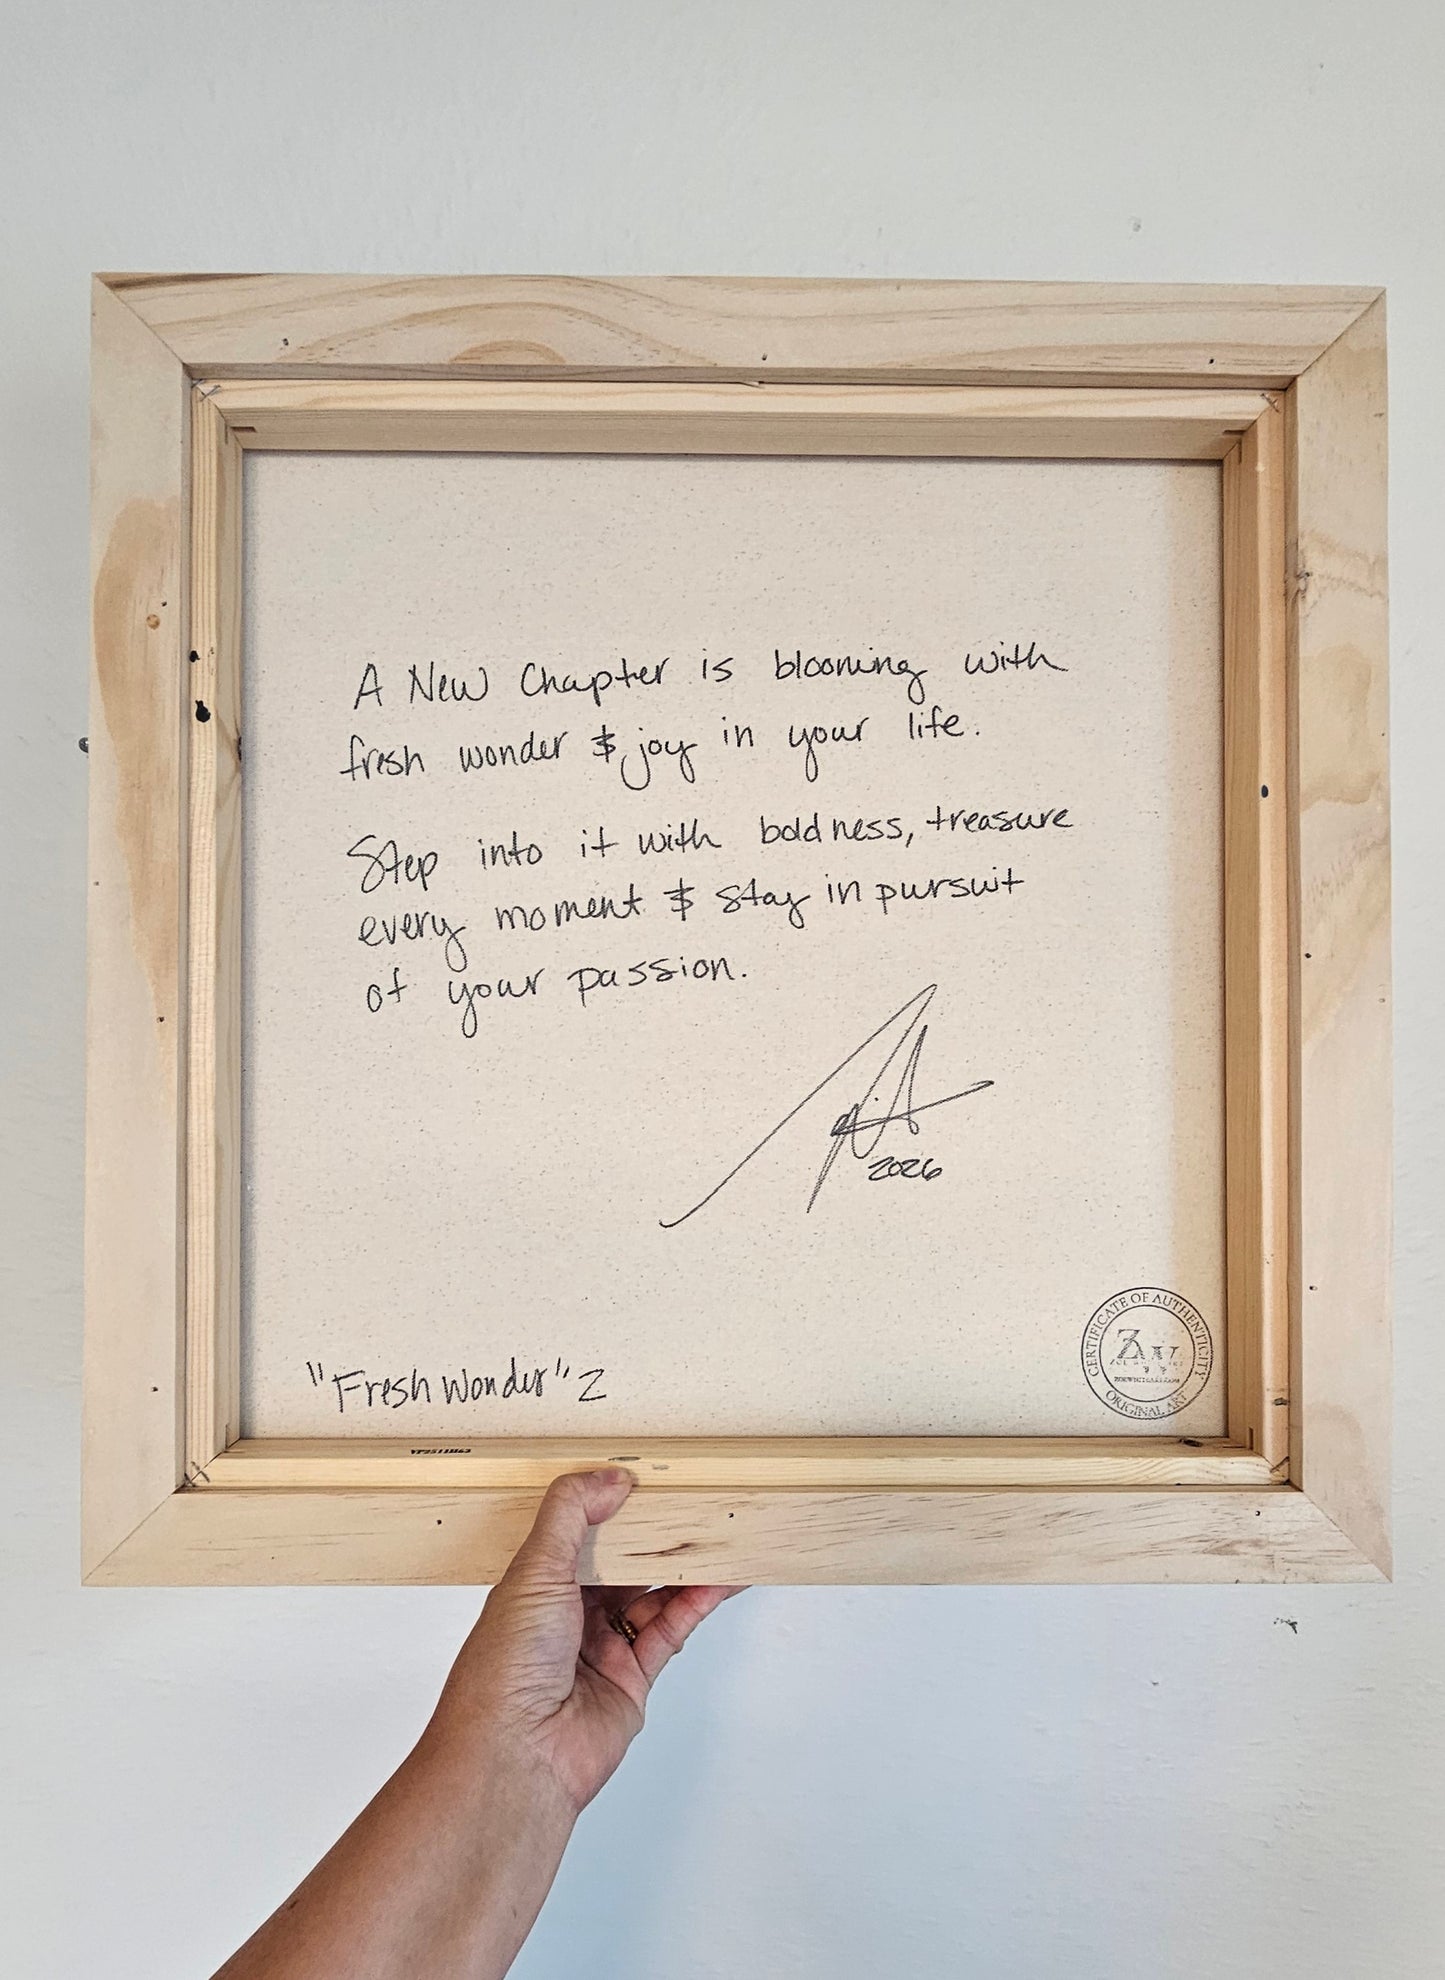 A New Chapter is blooming with
fresh wonder & joy in your life.
Step into it with boldness, treasure
every moment & stay in pursuit
of your passion.
2026
"Fresh Wonder" 2
CERTIFICATE OF AUTHENTICITY
ZW
ORIGINAL ART